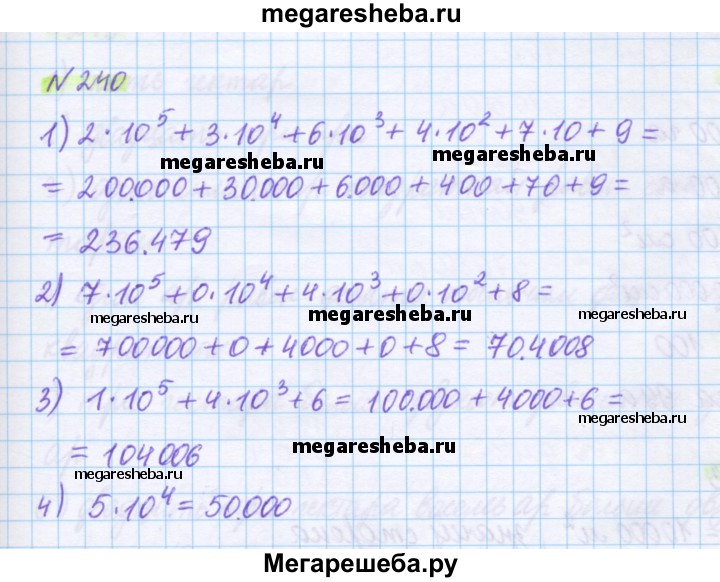 megaresheba.ru
N 240
1) 2·10⁵ + 3·10⁴ + 6·10³ + 4·10² + 7·10 + 9 =
megaresheba.ru megaresheba.ru
= 200.000 + 30.000 + 6.000 + 400 + 70 + 9 =
= 236.479
2) 7·10⁵ + 0·10⁴ + 4·10³ + 0·10² + 8 =
megaresheba.ru megaresheba.ru megaresheba.ru
= 700000 + 0 + 4000 + 0 + 8 = 70.4008
3) 1·10⁵ + 4·10³ + 6 = 100.000 + 4000 + 6 =
= 104006 megaresheba.ru
megaresheba.ru megaresheba.ru
4) 5·10⁴ = 50.000
Мегарешеба.ру